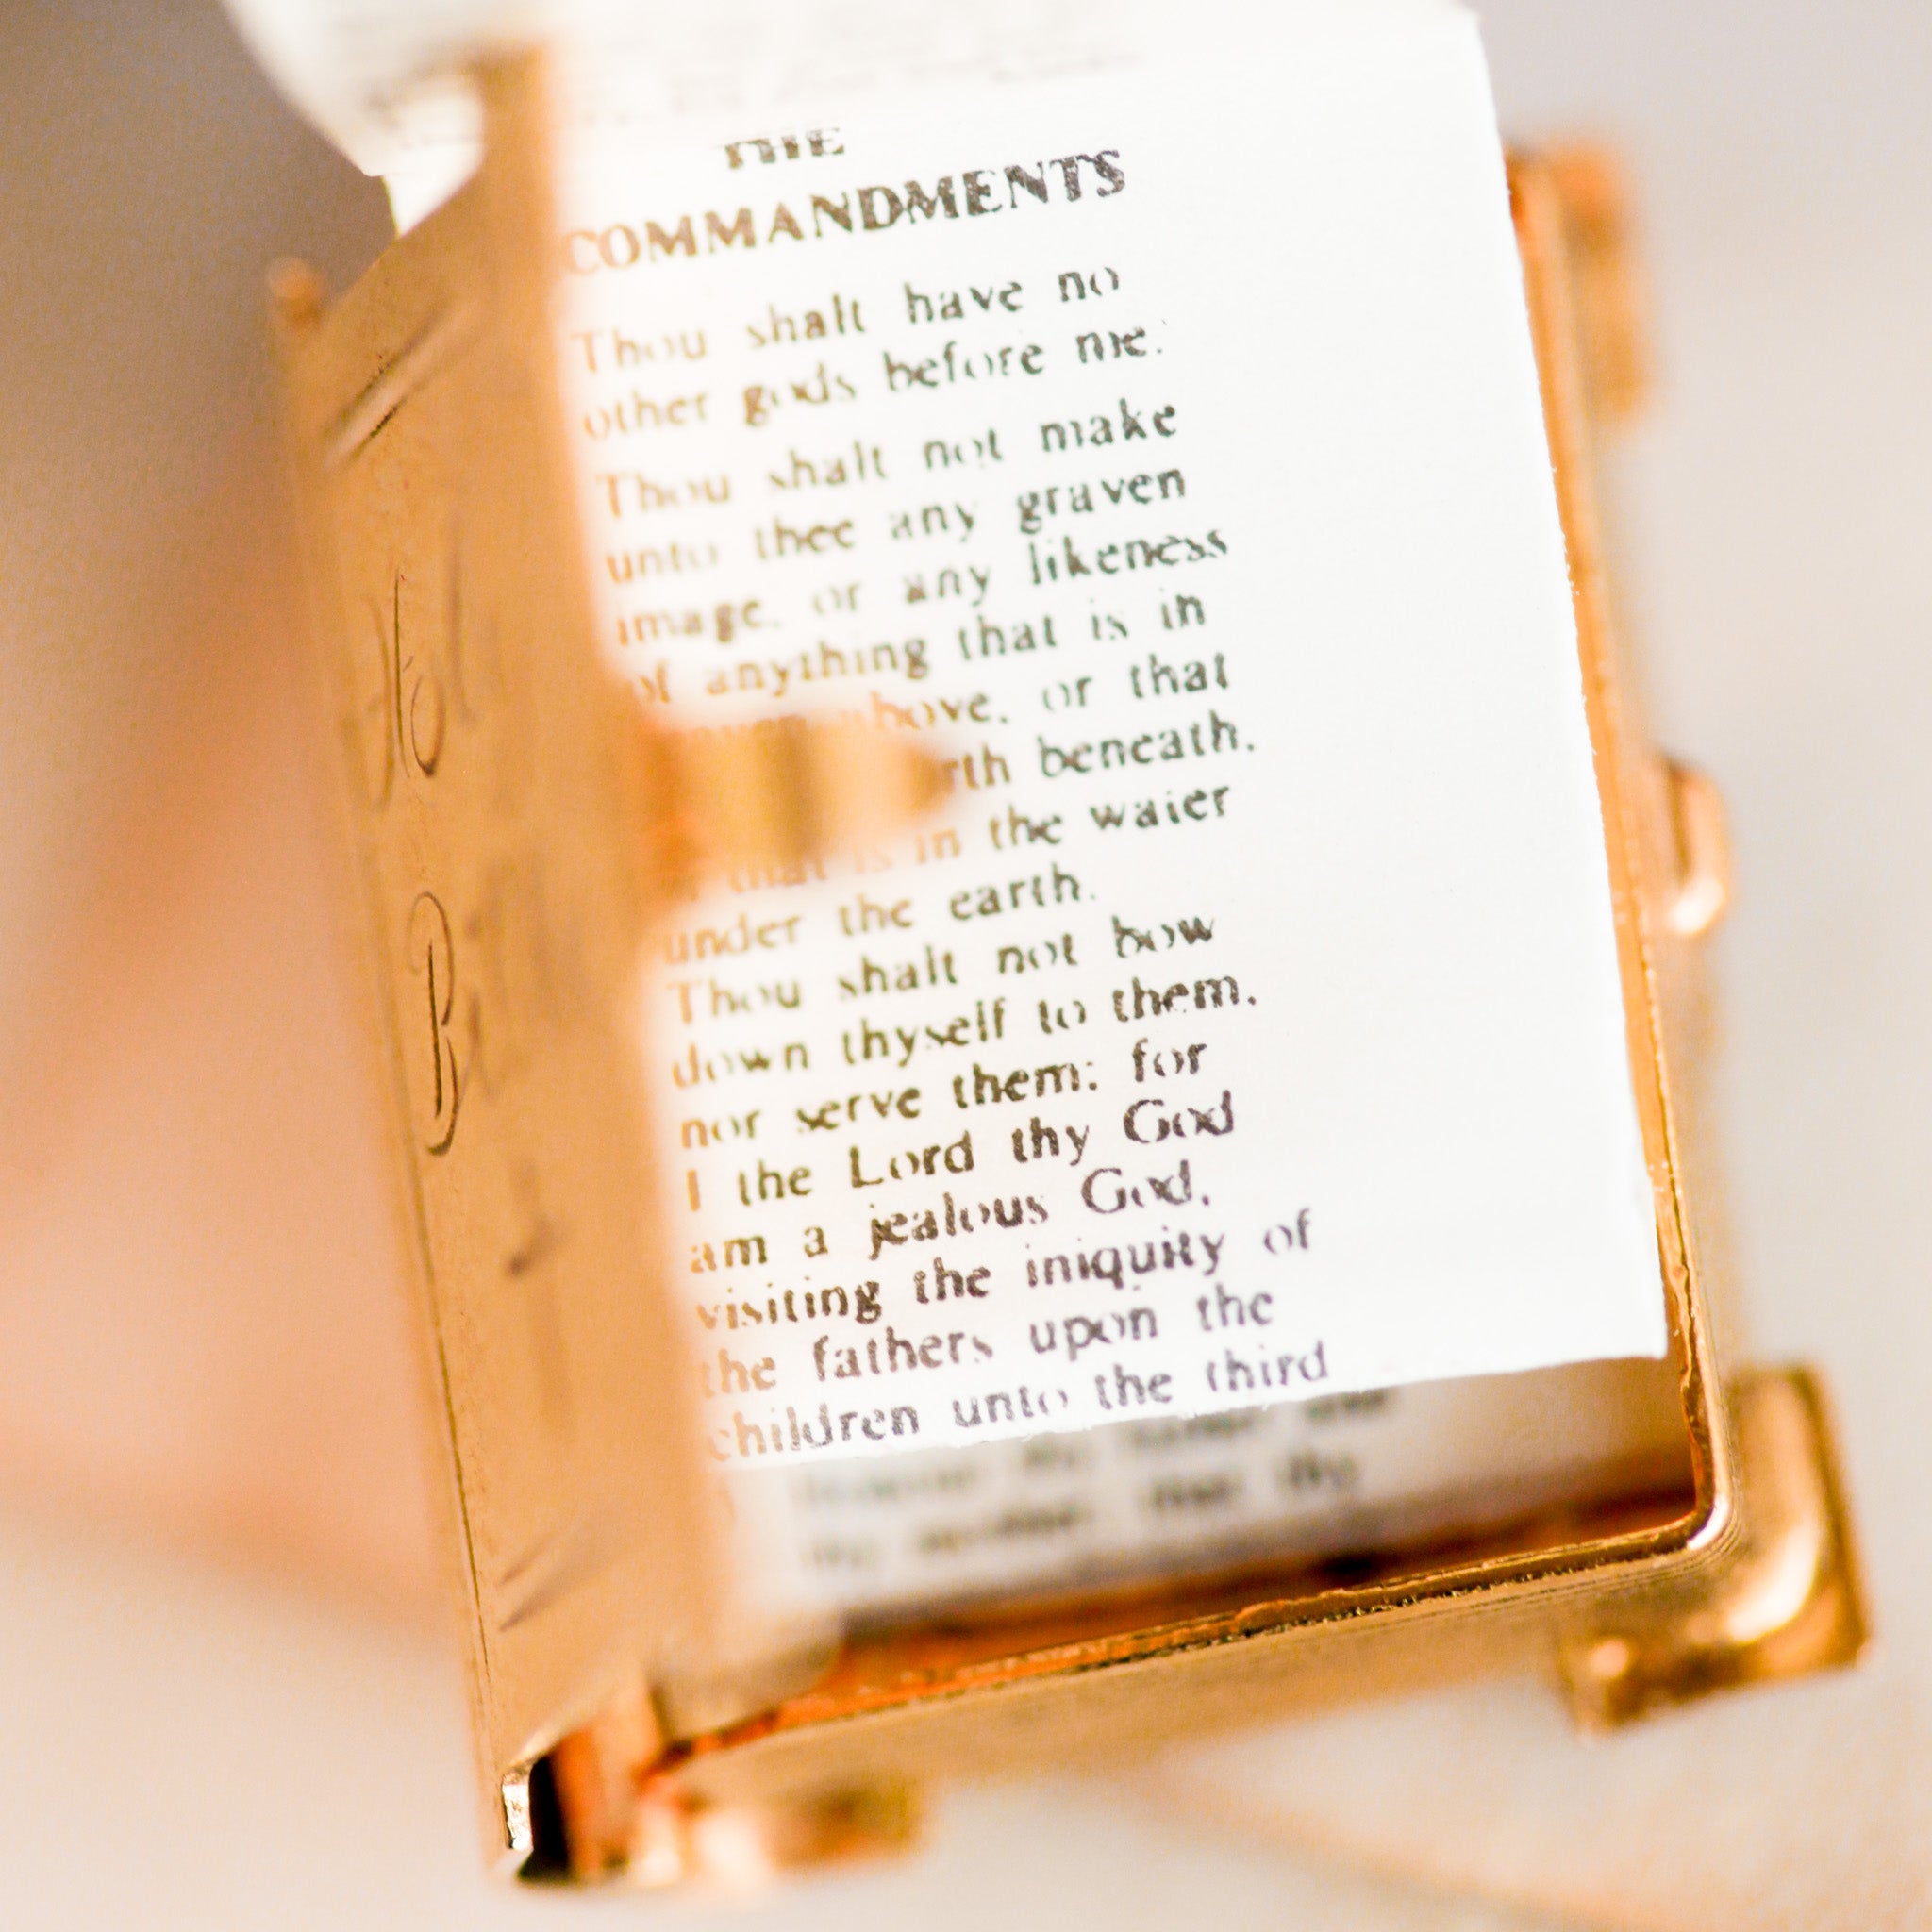 THE
COMMANDMENTS
Thou shalt have no
other gods before me.
Thou shalt not make
unto thee any graven
image, or any likeness
of anything that is in
above, or that
beneath,
that is in the water
under the earth.
Thou shalt not bow
down thyself to them,
nor serve them: for
I the Lord thy God
am a jealous God,
visiting the iniquity of
the fathers upon the
children unto the third
thy mother: that thy